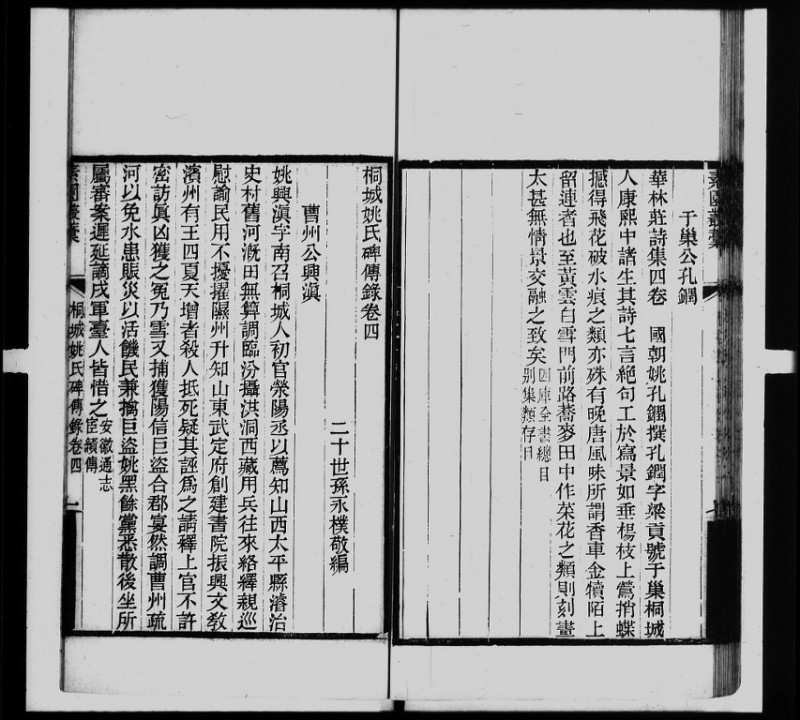 素園叢稾
于巢公孔鐗
華林莊詩集四卷 國朝姚孔鐗撰孔鐗字梁貢號于巢桐城
人康熙中諸生其詩七言絕句工於寫景如垂楊枝上鶯捎蝶
撼得飛花破水痕之類亦殊有晚唐風味所謂香車金犢陌上
留連者也至黃雲白雪門前路蕎麥田中作菜花之類則刻畫
太甚無情景交融之致矣四庫全書總目
別集類存目
桐城姚氏碑傳錄卷四
二十世孫永樸敬編
曹州公興滇
姚興滇字南召桐城人初官滎陽丞以薦知山西太平縣濬治
史村舊河漑田無算調臨汾攝洪洞西藏用兵往來絡繹親巡
慰諭民用不擾擢隰州升知山東武定府創建書院振興文敎
濱州有王四夏天增者殺人抵死疑其誣爲之請釋上官不許
密訪眞凶獲之冤乃雪又捕獲陽信巨盜合郡宴然調曹州疏
河以免水患賑災以活饑民兼擒巨盜姚黑餘黨悉散後坐所
屬審案遲延謫戍軍臺人皆惜之安徽通志
宦績傳
素園叢稾
桐城姚氏碑傳錄卷四
一